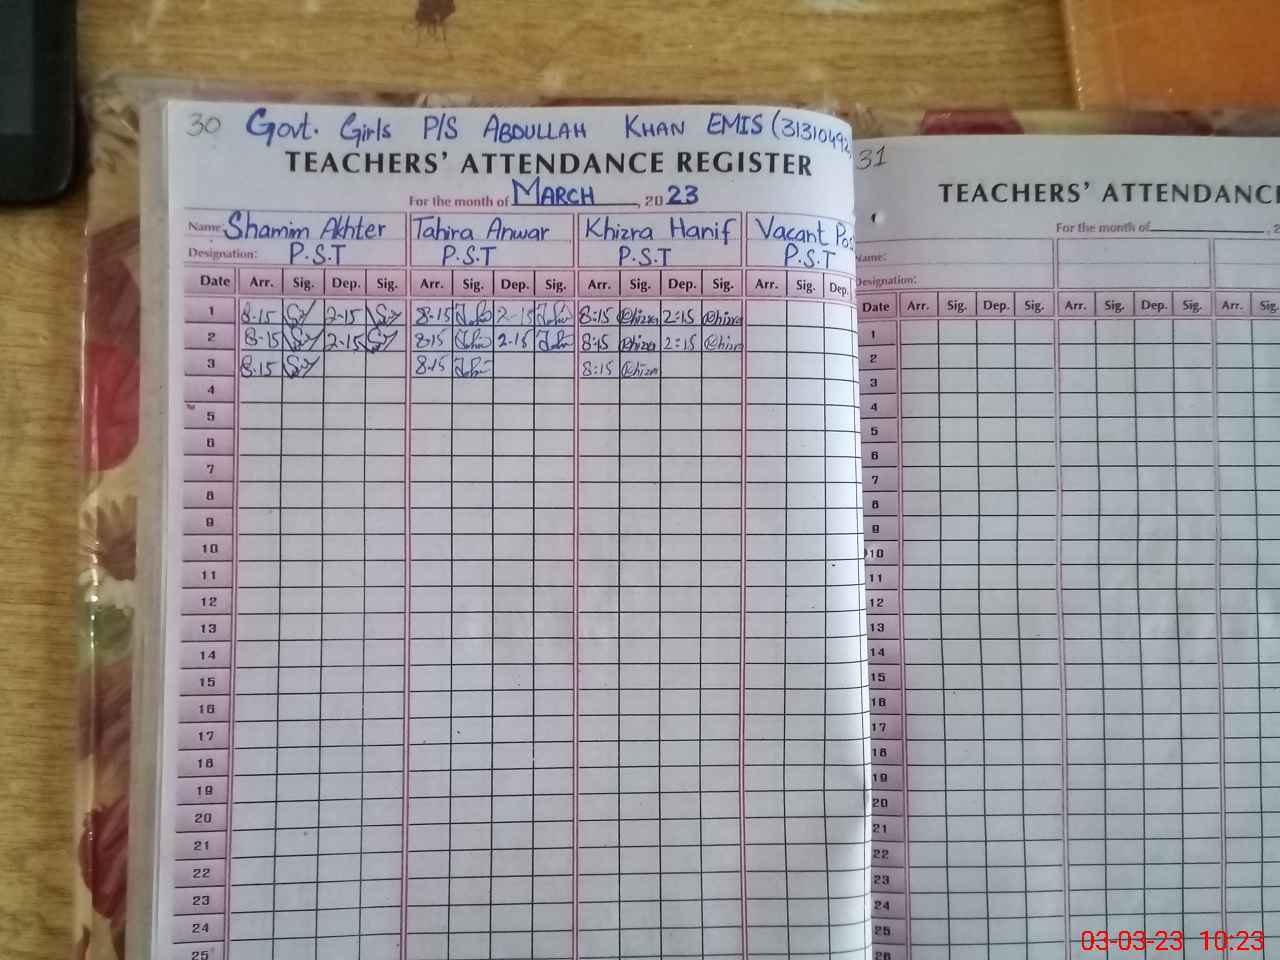 30 Govt. Girls P/S ABDULLAH KHAN EMIS (31310492
TEACHERS' ATTENDANCE REGISTER
For the month of MARCH, 2023
Name: Shamim Akhter Tahira Anwar Khizra Hanif Vacant Pos
Designation: P.S.T P.S.T P.S.T P.S.T
Date Arr. Sig. Dep. Sig. Arr. Sig. Dep. Sig. Arr. Sig. Dep. Sig. Arr. Sig. Dep.
1 8-15 2-15 8-15 2-15 8:15 Khizra 2:15 Khizra
2 8-15 2-15 8-15 2-15 8:15 Khizra 2:15 Khizra
3 8-15 8-15 8:15 Khizra
4
5
6
7
8
9
10
11
12
13
14
15
16
17
18
19
20
21
22
23
24
25
31
TEACHERS' ATTENDANCE
For the month of
Name:
Designation:
Date Arr. Sig. Dep. Sig. Arr. Sig. Dep. Sig. Arr. Sig.
1
2
3
4
5
6
7
8
9
10
11
12
13
14
15
16
17
18
19
20
21
22
23
24
25
26
03-03-23 10:23